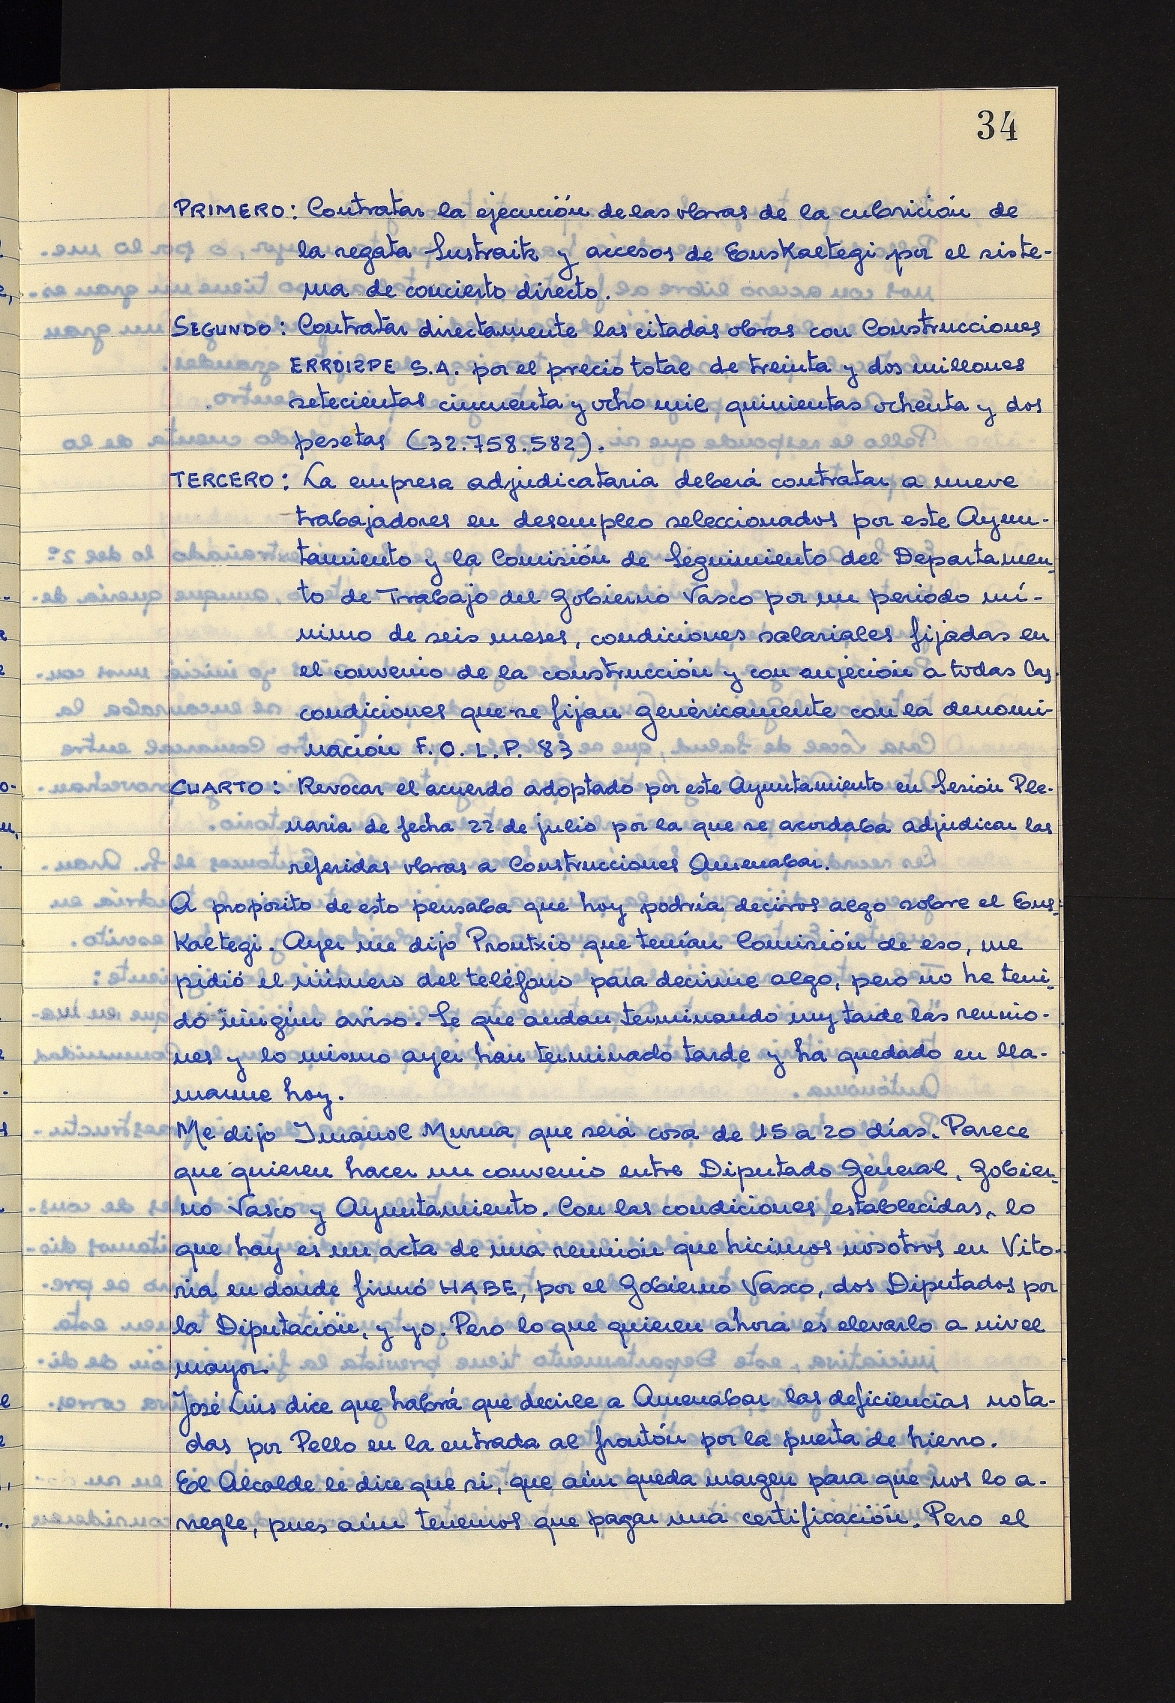 34
PRIMERO: Contratar la ejecución de las obras de la cubrición de
la regata Sustraitz y accesos de Euskaltegi por el siste-
ma de concierto directo.
SEGUNDO: Contratar directamente las citadas obras con Construcciones
ERROIZPE S.A. por el precio total de treinta y dos millones
setecientas cincuenta y ocho mil quinientas ochenta y dos
pesetas (32.758.582).
TERCERO: La empresa adjudicataria deberá contratar a nueve
trabajadores en desempleo seleccionados por este Ayun-
tamiento y la Comisión de Seguimiento del Departamen-
to de Trabajo del Gobierno Vasco por un periodo mí-
nimo de seis meses, condiciones salariales fijadas en
el convenio de la construcción y con sujeción a todas las
condiciones que se fijan genéricamente con la denomi-
nación F.O.L.P. 83
CUARTO: Revocar el acuerdo adoptado por este Ayuntamiento en Sesión Ple-
naria de fecha 22 de julio por la que se acordaba adjudicar las
referidas obras a Construcciones Amenabar.
A propósito de esto pensaba que hoy podría deciros algo sobre el Eus-
kaltegi. Ayer me dijo Prontxio que tenían Comisión de eso, me
pidió el número del teléfono para decirme algo, pero no he teni-
do ningún aviso. Se que andan terminando muy tarde las reunio-
nes y lo mismo ayer han terminado tarde y ha quedado en lla-
marme hoy.
Me dijo Imanol Murua que será cosa de 15 a 20 días. Parece
que quieren hacer un convenio entre Diputado General, Gobier-
no Vasco y Ayuntamiento. Con las condiciones establecidas, lo
que hay es un acta de una reunión que hicimos nosotros en Vito-
ria en donde firmó HABE, por el Gobierno Vasco, dos Diputados por
la Diputación, y yo. Pero lo que quieren ahora es elevarlo a nivel
mayor.
José Luis dice que habrá que decirle a Amenabar las deficiencias nota-
das por Pello en la entrada al frontón por la puerta de hierro.
El Alcalde le dice que si, que aún queda margen para que nos lo a-
rregle, pues aún tenemos que pagar una certificación. Pero el